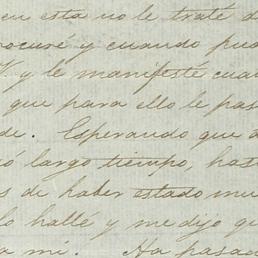 en esta no le traté d
rocuré y cuando pud
V. y le manifesté cua
que para ello le pas
de. Esperando que a
ó largo tiempo, hast
s de haber estado mu
lo hallé y me dijo qu
a mí. Ha pasad